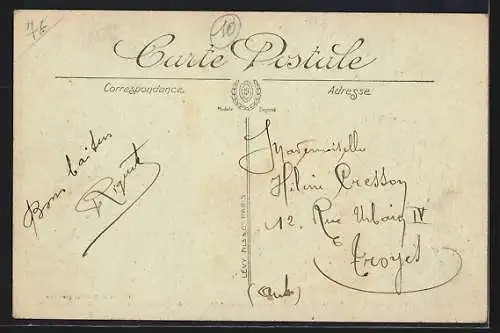 76
10
Carte Postale
Correspondance
Adresse
Modèle Déposé
LÉVY FILS & Cie PARIS
Bons baisers
Mademoiselle
12, Rue Urbain IV
Troyes
(Aube)